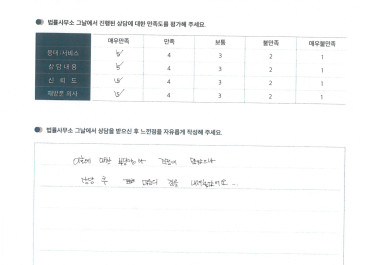 법률사무소 그날에서 진행된 상담에 대한 만족도를 평가해 주세요.
매우만족 만족 보통 불만족 매우불만족
응대·서비스 5 4 3 2 1
상담내용 5 4 3 2 1
신뢰도 5 4 3 2 1
재방문 의사 5 4 3 2 1
법률사무소 그날에서 상담을 받으신 후 느낀점을 자유롭게 작성해 주세요.
이혼에 대한
상담 후